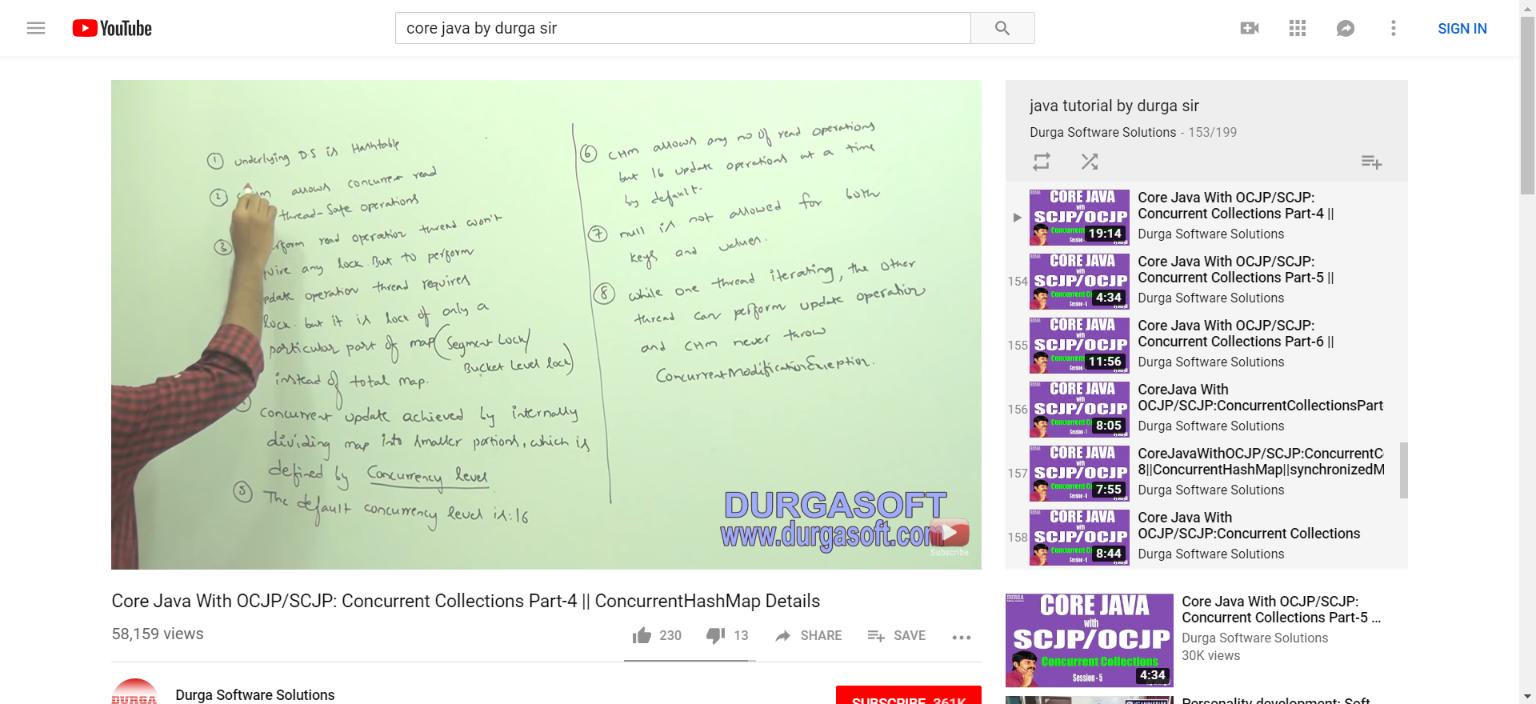 YouTube
core java by durga sir
SIGN IN
① underlying DS is Hashtable
② allows concurrent read
thread-safe operations
③ read operation thread won't
any lock. But to perform
update operation thread requires
lock. but it is lock of only a
particular part of map (Segment Lock/
Bucket Level lock)
instead of total map.
concurrent update achieved by internally
dividing map into smaller portions, which is
defined by Concurrency level
⑤ The default concurrency level is:16
⑥ CHM allows any no of read operations
but 16 update operations at a time
by default.
⑦ null is not allowed for both
keys and values.
⑧ while one thread iterating, the other
thread can perform update operation
and CHM never throw
ConcurrentModificationException.
DURGASOFT
www.durgasoft.com
Subscribe
Core Java With OCJP/SCJP: Concurrent Collections Part-4 || ConcurrentHashMap Details
58,159 views
230
13
SHARE
SAVE
DURGA
Durga Software Solutions
SUBSCRIBE 361K
java tutorial by durga sir
Durga Software Solutions - 153/199
CORE JAVA
with
SCJP/OCJP
19:14
Core Java With OCJP/SCJP:
Concurrent Collections Part-4 ||
Durga Software Solutions
154
CORE JAVA
with
SCJP/OCJP
4:34
Core Java With OCJP/SCJP:
Concurrent Collections Part-5 ||
Durga Software Solutions
155
CORE JAVA
with
SCJP/OCJP
11:56
Core Java With OCJP/SCJP:
Concurrent Collections Part-6 ||
Durga Software Solutions
156
CORE JAVA
with
SCJP/OCJP
8:05
CoreJava With
OCJP/SCJP:ConcurrentCollectionsPart
Durga Software Solutions
157
CORE JAVA
with
SCJP/OCJP
7:55
CoreJavaWithOCJP/SCJP:ConcurrentC
8||ConcurrentHashMap||synchronizedM
Durga Software Solutions
158
CORE JAVA
with
SCJP/OCJP
8:44
Core Java With
OCJP/SCJP:Concurrent Collections
Durga Software Solutions
CORE JAVA
with
SCJP/OCJP
Concurrent Collections
Session - 5
4:34
Core Java With OCJP/SCJP:
Concurrent Collections Part-5 ...
Durga Software Solutions
30K views
Personality development: Soft